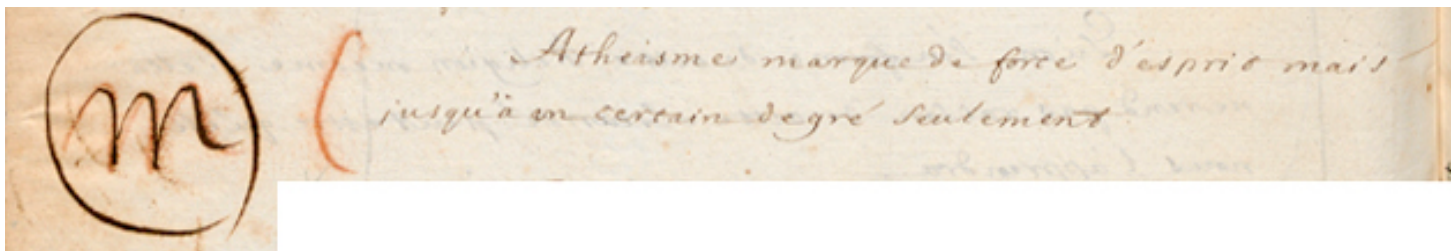 m
Atheisme marque de force d'esprit mais
jusqu'à un certain degré seulement.